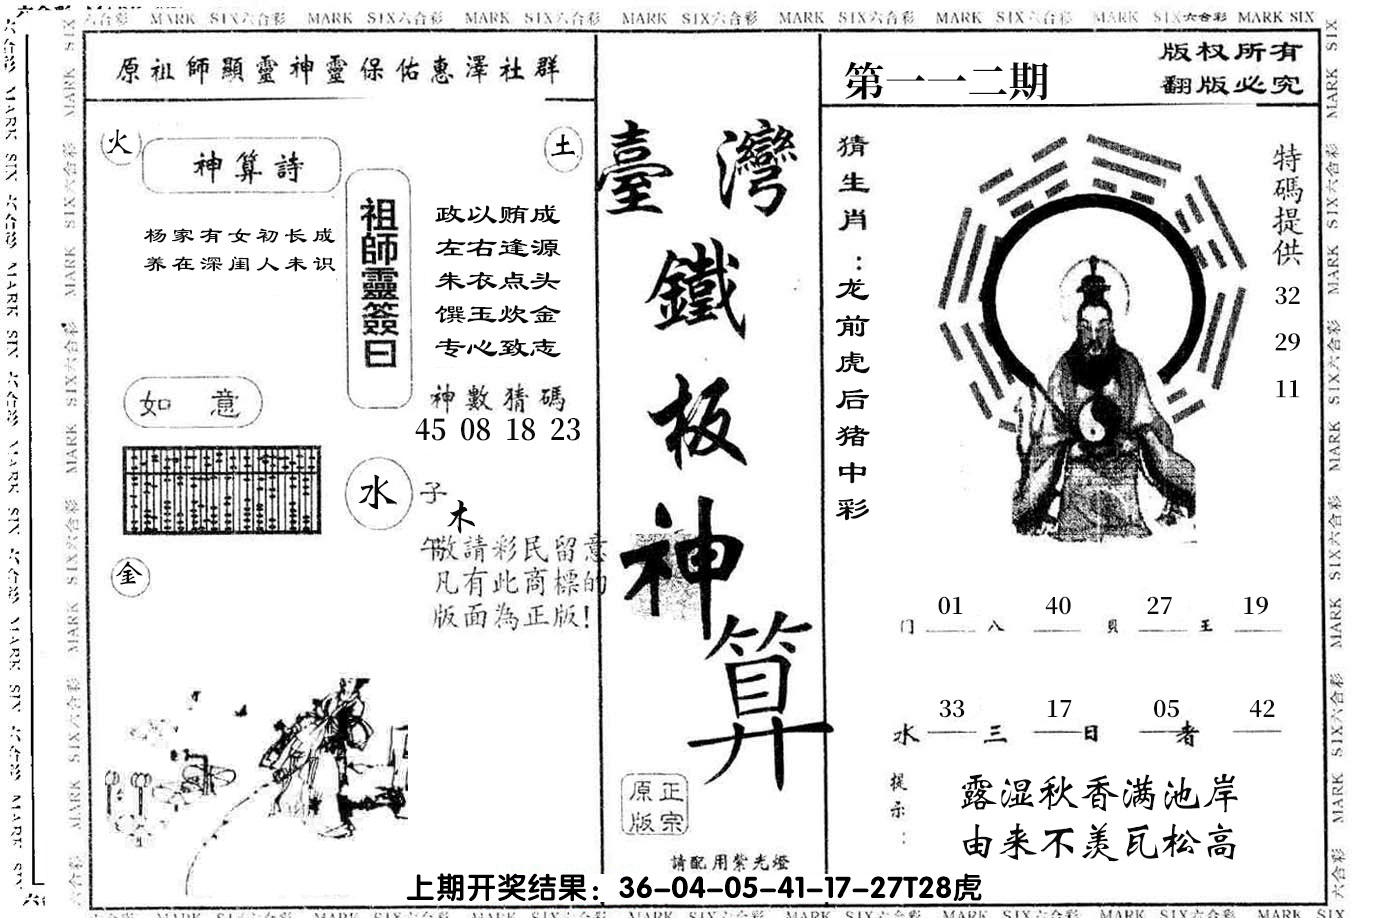 六合彩 MARK SIX六合彩 MARK SIX六合彩 MARK SIX六合彩 MARK SIX六合彩 MARK SIX六合彩 MARK SIX六合彩 MARK SIX六合彩 MARK SIX
原祖師顯靈神靈保佑惠澤社群
火
神算詩
土
杨家有女初长成
养在深闺人未识
祖師靈簽曰
政以贿成
左右逢源
朱衣点头
馔玉炊金
专心致志
神數猜碼
45 08 18 23
如意
水
子
木
午
金
敬請彩民留意
凡有此商標的
版面為正版!
臺灣
鐵
板
神
算
正宗
原版
請配用紫光燈
第一一二期
版权所有
翻版必究
猜生肖:龙前虎后猪中彩
特碼提供
32
29
11
01 40 27 19
门 八 貝 王
33 17 05 42
水 三 日 者
提示:
露湿秋香满池岸
由来不羡瓦松高
上期开奖结果：36-04-05-41-17-27T28虎